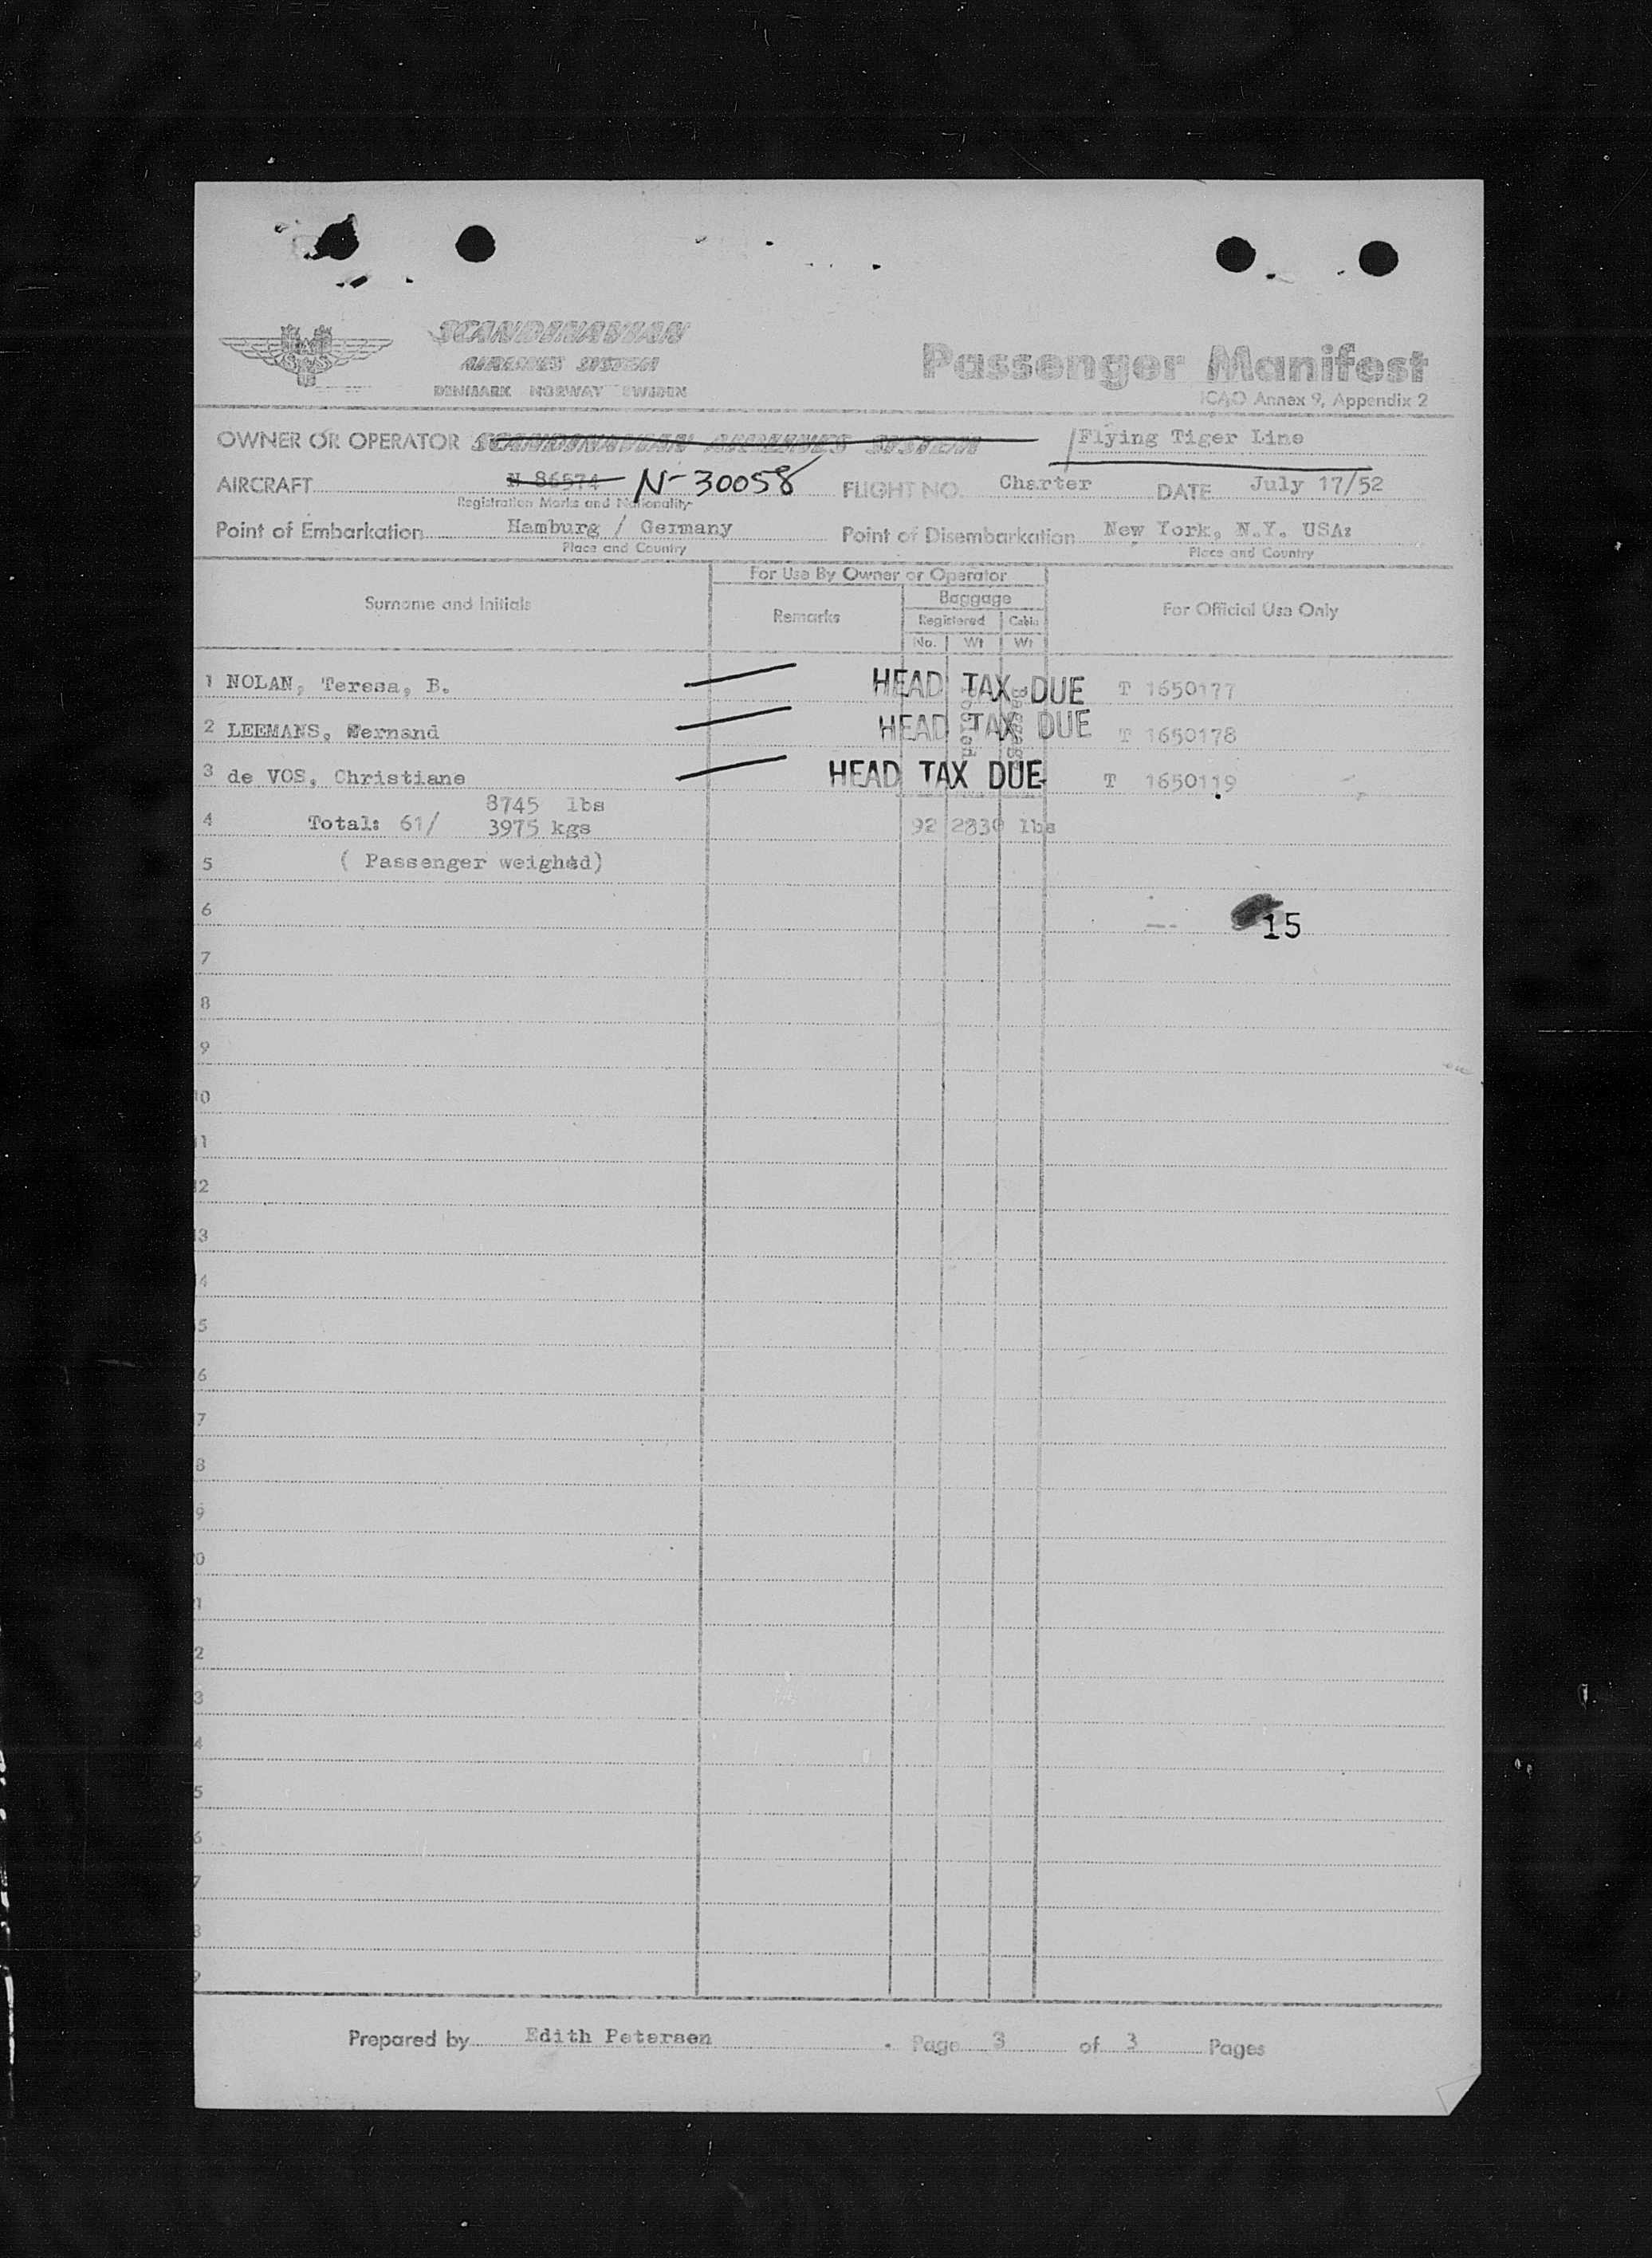 SCANDINAVIAN
AIRLINES SYSTEM
DENMARK NORWAY SWEDEN
SAS
Passenger Manifest
ICAO Annex 9, Appendix 2
OWNER OR OPERATOR SCANDINAVIAN AIRLINES SYSTEM Flying Tiger Line
AIRCRAFT N 86574 N-30058 FLIGHT NO. Charter DATE July 17/52
Registration Marks and Nationality
Point of Embarkation Hamburg / Germany Point of Disembarkation New York, N.Y. USA:
Place and Country Place and Country
For Use By Owner or Operator
Surname and Initials Remarks Baggage For Official Use Only
Registered Cabin
No. Wt Wt
1 NOLAN, Teresa, B. HEAD TAX DUE T 1650177
2 LEEMANS, Fernand HEAD TAX DUE T 1650178
3 de VOS, Christiane HEAD TAX DUE T 1650119
8745 lbs
4 Total: 61/ 3975 kgs 92 2830 lbs
5 ( Passenger weighed)
6 15
7
8
9
10
11
12
13
14
15
16
17
18
19
20
21
2
3
4
5
6
7
8
9
Prepared by Edith Petersen Page 3 of 3 Pages